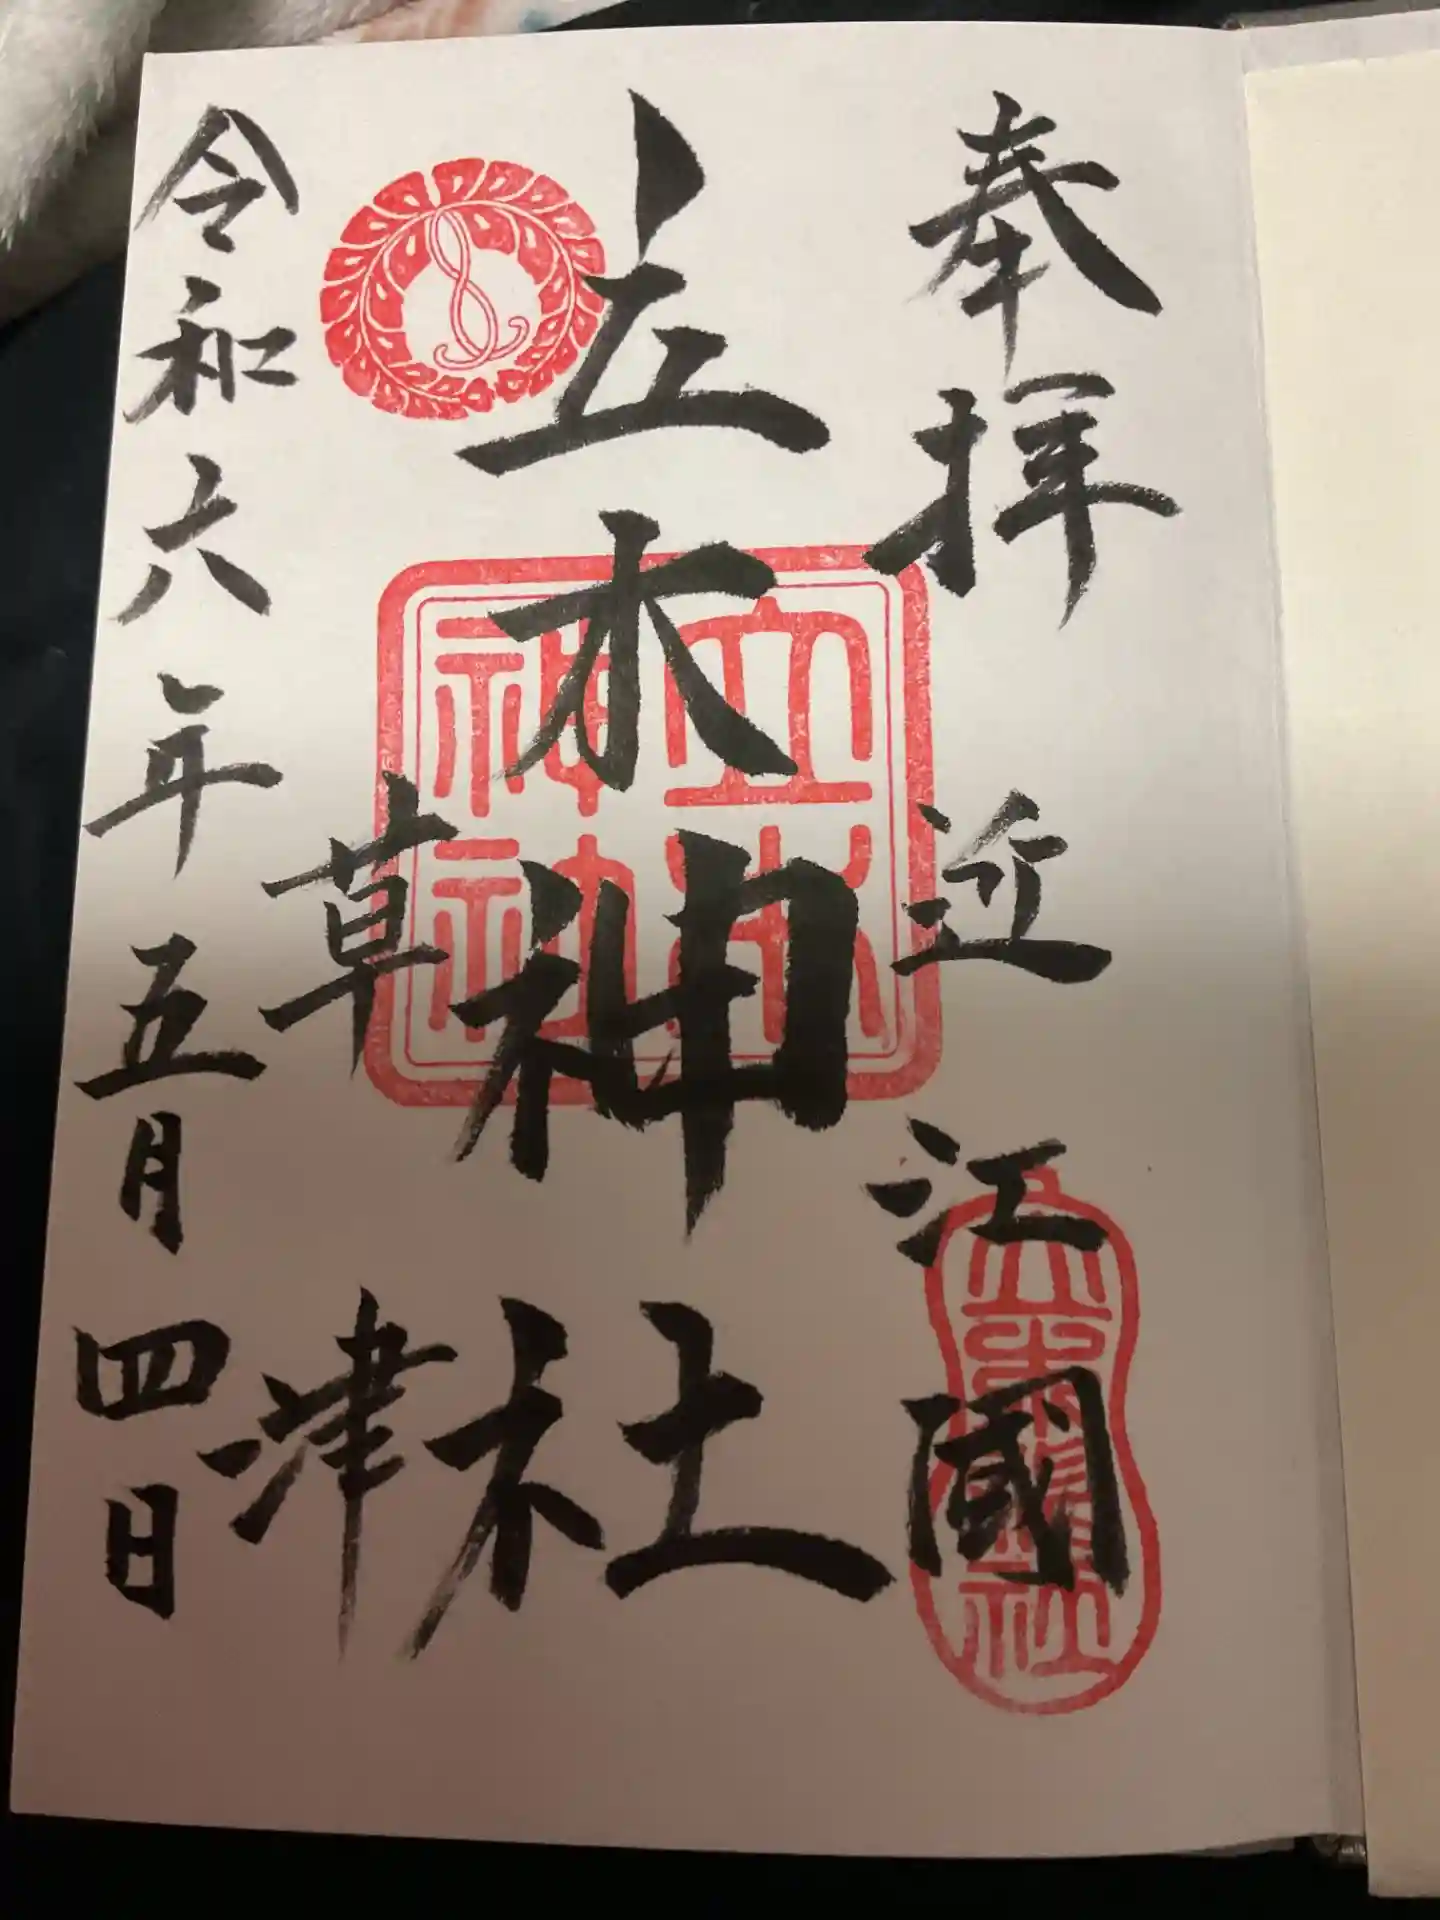 奉拝
近江國
立木神社
草津
令和六年五月四日
立木
神社